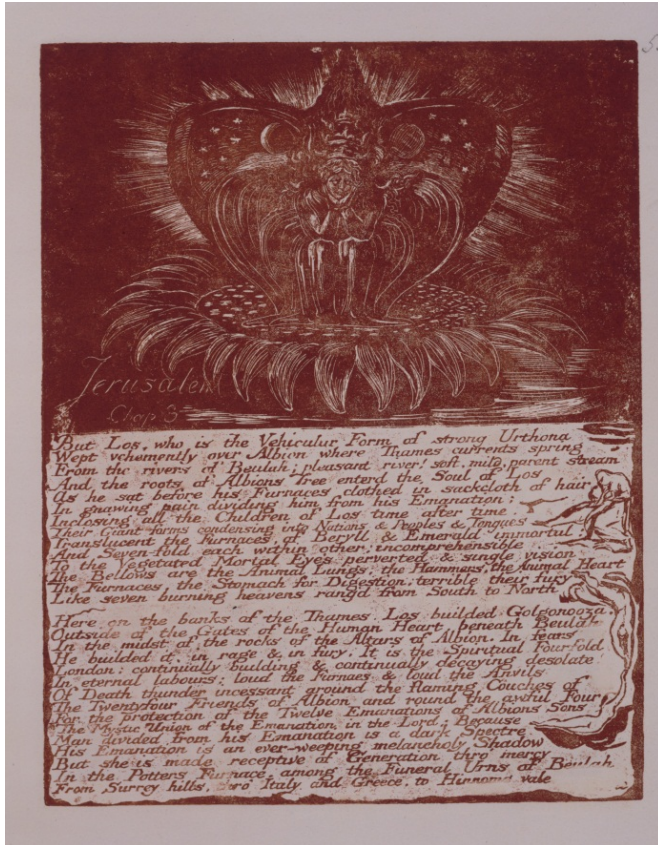 5
Jerusalem
Chap 3
But Los, who is the Vehicular Form of strong Urthona
Wept vehemently over Albion where Thames currents spring
From the rivers of Beulah; pleasant river! soft, mild, parent stream
And the roots of Albions Tree enterd the Soul of Los
As he sat before his Furnaces clothed in sackcloth of hair
In gnawing pain dividing him from his Emanation;
Inclosing all the Children of Los time after time.
Their Giant forms condensing into Nations & Peoples & Tongues
Translucent the Furnaces, of Beryll & Emerald immortal:
And Seven-fold each within other: incomprehensible
To the Vegetated Mortal Eye's perverted & single vision
The Bellows are the Animal Lungs. the Hammers, the Animal Heart
The Furnaces, the Stomach for Digestion; terrible their fury
Like seven burning heavens rang'd from South to North
Here on the banks of the Thames, Los builded Golgonooza,
Outside of the Gates of the Human Heart, beneath Beulah
In the midst of the rocks of the Altars of Albion. In fears
He builded it, in rage & in fury. It is the Spiritual Fourfold
London: continually building & continually decaying desolate!
In eternal labours: loud the Furnaces & loud the Anvils
Of Death thunder incessant around the flaming Couches of
The Twentyfour Friends of Albion and round the awful Four
For the protection of the Twelve Emanations of Albions Sons
The Mystic Union of the Emanation in the Lord; Because
Man divided from his Emanation is a dark Spectre
His Emanation is an ever-weeping melancholy Shadow
But she is made receptive of Generation thro' mercy
In the Potters Furnace, among the Funeral Urns of Beulah
From Surrey hills, thro' Italy and Greece, to Hinnoms vale.